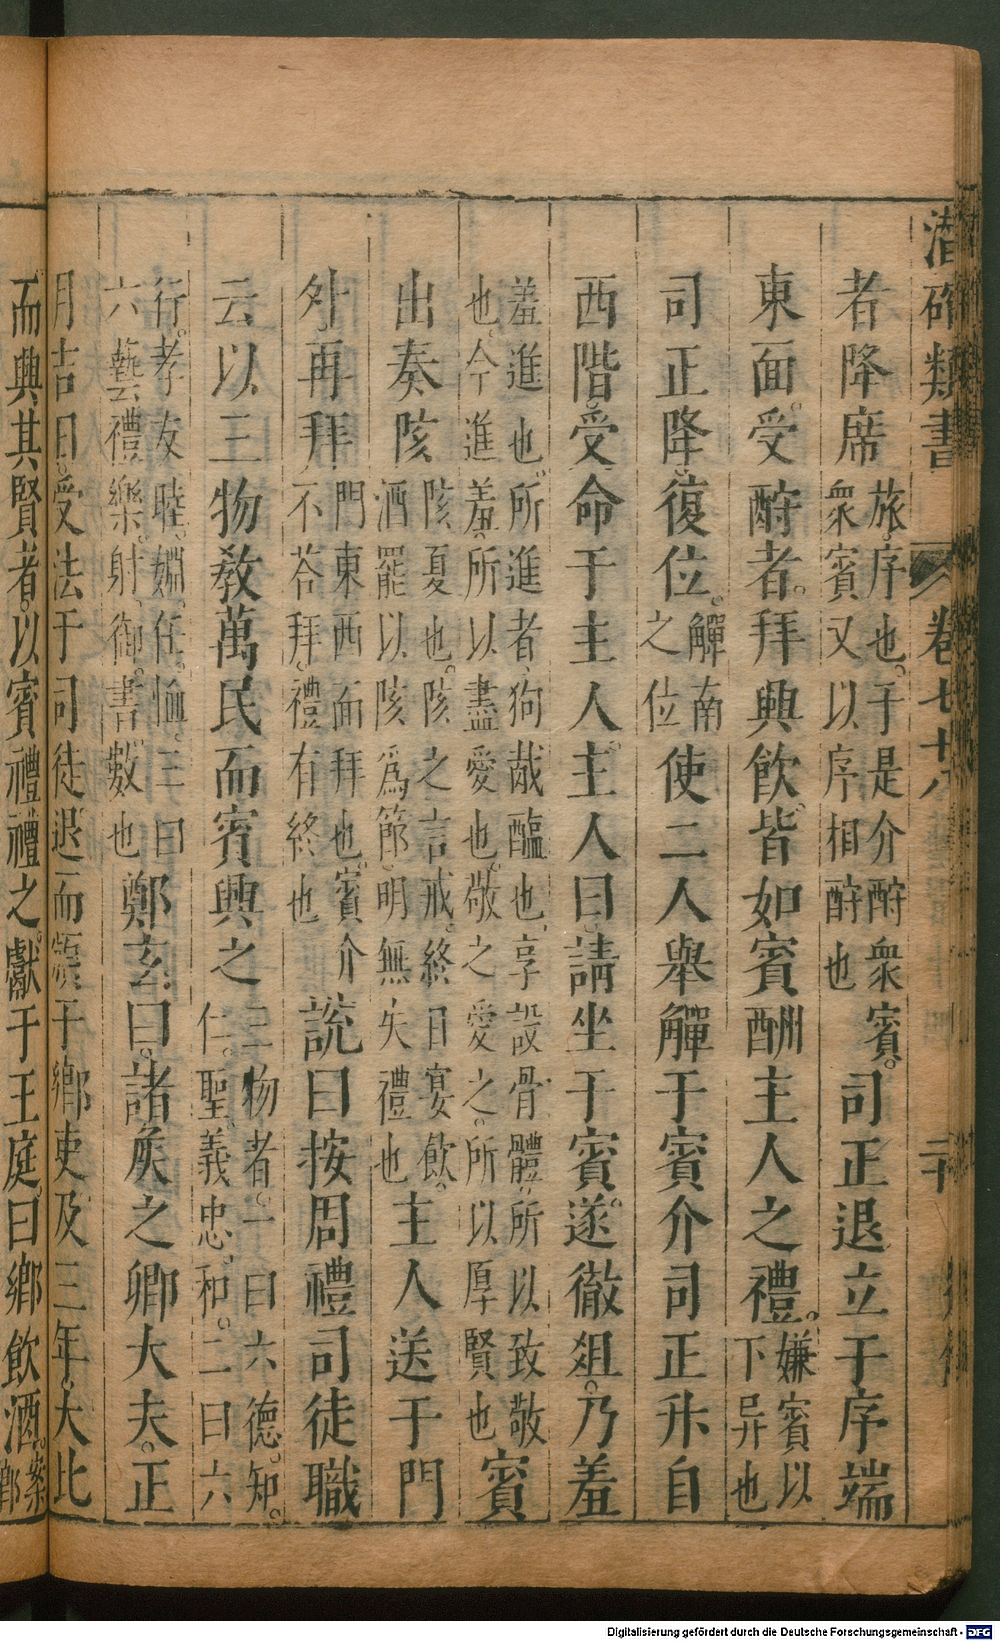 潛確類書 卷七十八 二十
者降席旅序也。于是介酧衆賓。
衆賓又以序相酧也司正退立于序端
東面。受酧者。拜興飲皆如賓酬主人之禮。嫌賓以
下异也
司正降復位。觶南
之位使二人舉觶于賓介司正升自
西階。受命于主人。主人曰。請坐于賓。遂徹俎。乃羞
羞進也。所進者狗胾醢也。享設骨體。所以致敬
也。今進羞。所以盡愛也。敬之愛之。所以厚賢也賓
出奏陔陔夏也。陔之言戒。終日宴飲。
酒罷以陔爲節。明無失禮也主人送于門
外。再拜門東西面拜也。賓介
不荅拜。禮有終也說曰按周禮司徒職
云以三物敎萬民而賓興之三物者。一曰六德。知。
仁。聖。義。忠。和。二曰六
行。孝友睦。婣。任。恤。三曰
六藝禮樂。射。御。書。數也鄭玄曰。諸侯之卿大夫。正
月吉日。受法于司徒退而頒于鄉吏及三年。大比
而興其賢者。以賓禮禮之。獻于王庭。曰鄉飲酒。案
鄉
Digitalisierung gefördert durch die Deutsche Forschungsgemeinschaft - DFG